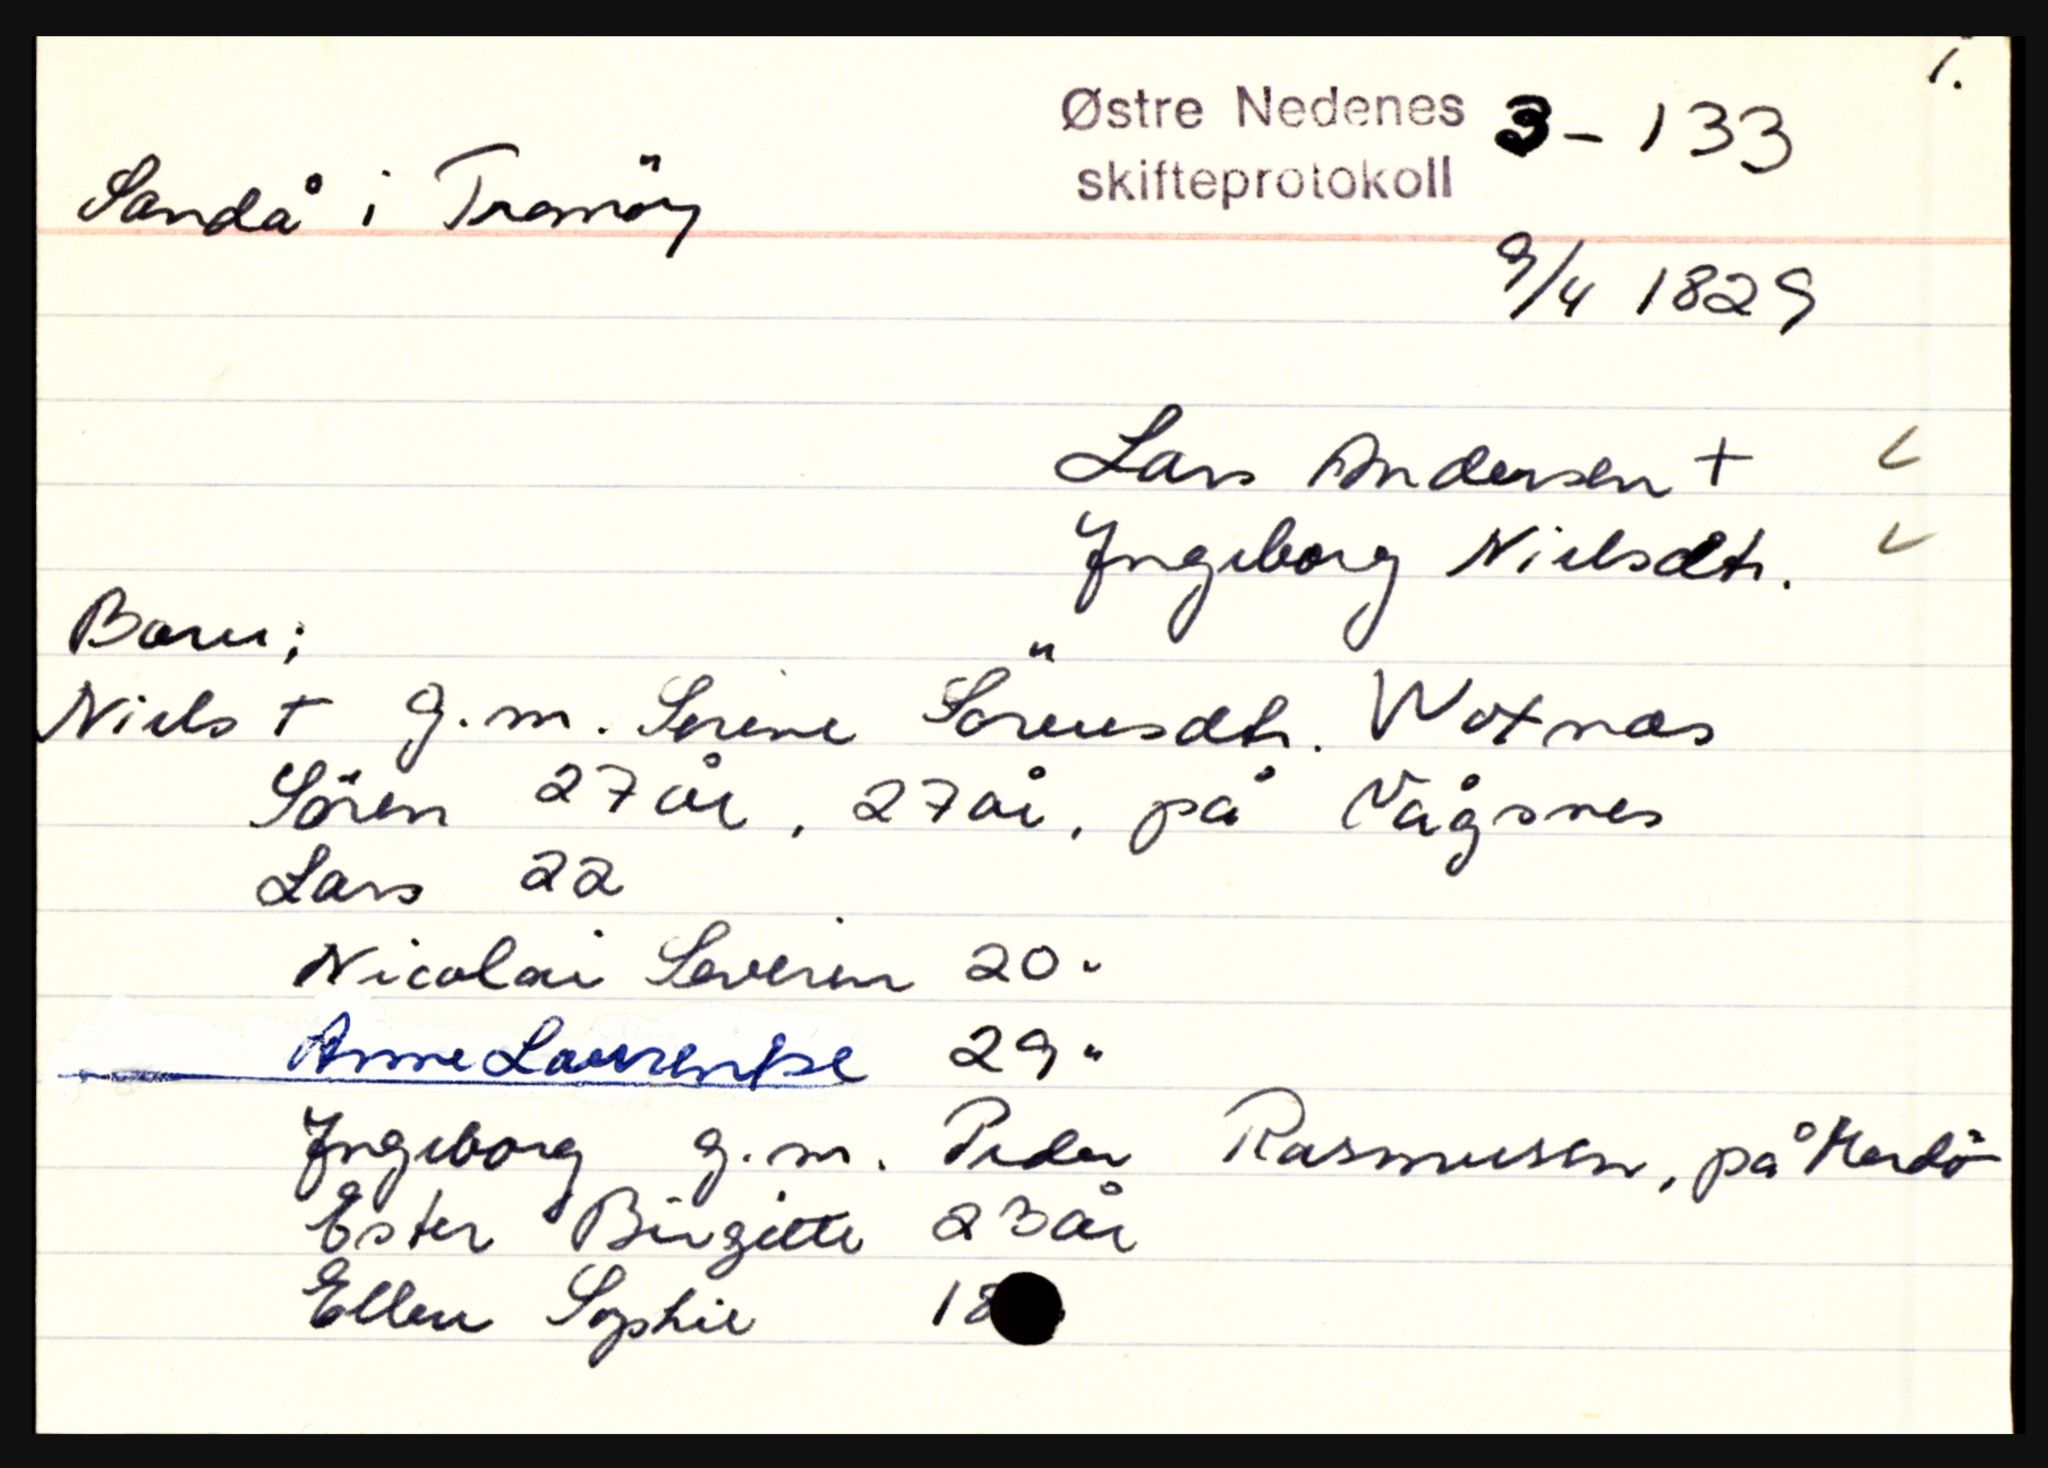 1.
Østre Nedenes 3-133
skifteprotokoll
Sandå i Tromöy
9/4 1829
Lars Andersen +
Ingeborg Nielsdtr.
Barn;
Niels + g.m. Serine Sörensdtr. Wotnæs
Sören 27 år, 27 år, på Vågsnes
Lars 22
Nicolai Severin 20 "
Anne Laurentse 29 "
Ingeborg g.m. Peder Rasmussen, på Merdö
Ester Birgitte 23 år
Ellen Sophie 18